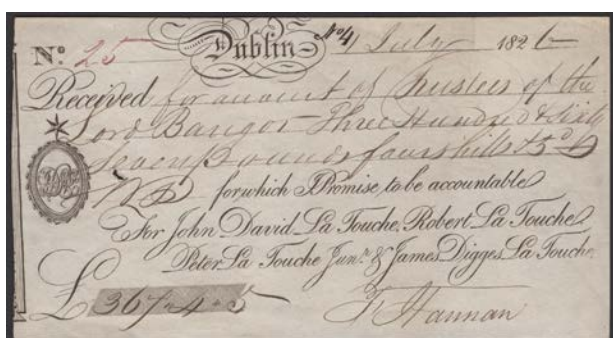 No. 25 Dublin July 1826
Received for account of Trustees of the
Lord Bangor Three Hundred & Sixty
Seven Pounds four shills & 5d
for which I Promise to be accountable
For John David La Touche, Robert La Touche
Peter La Touche Junr. & James Digges La Touche
£ 367-4-5 Hannan